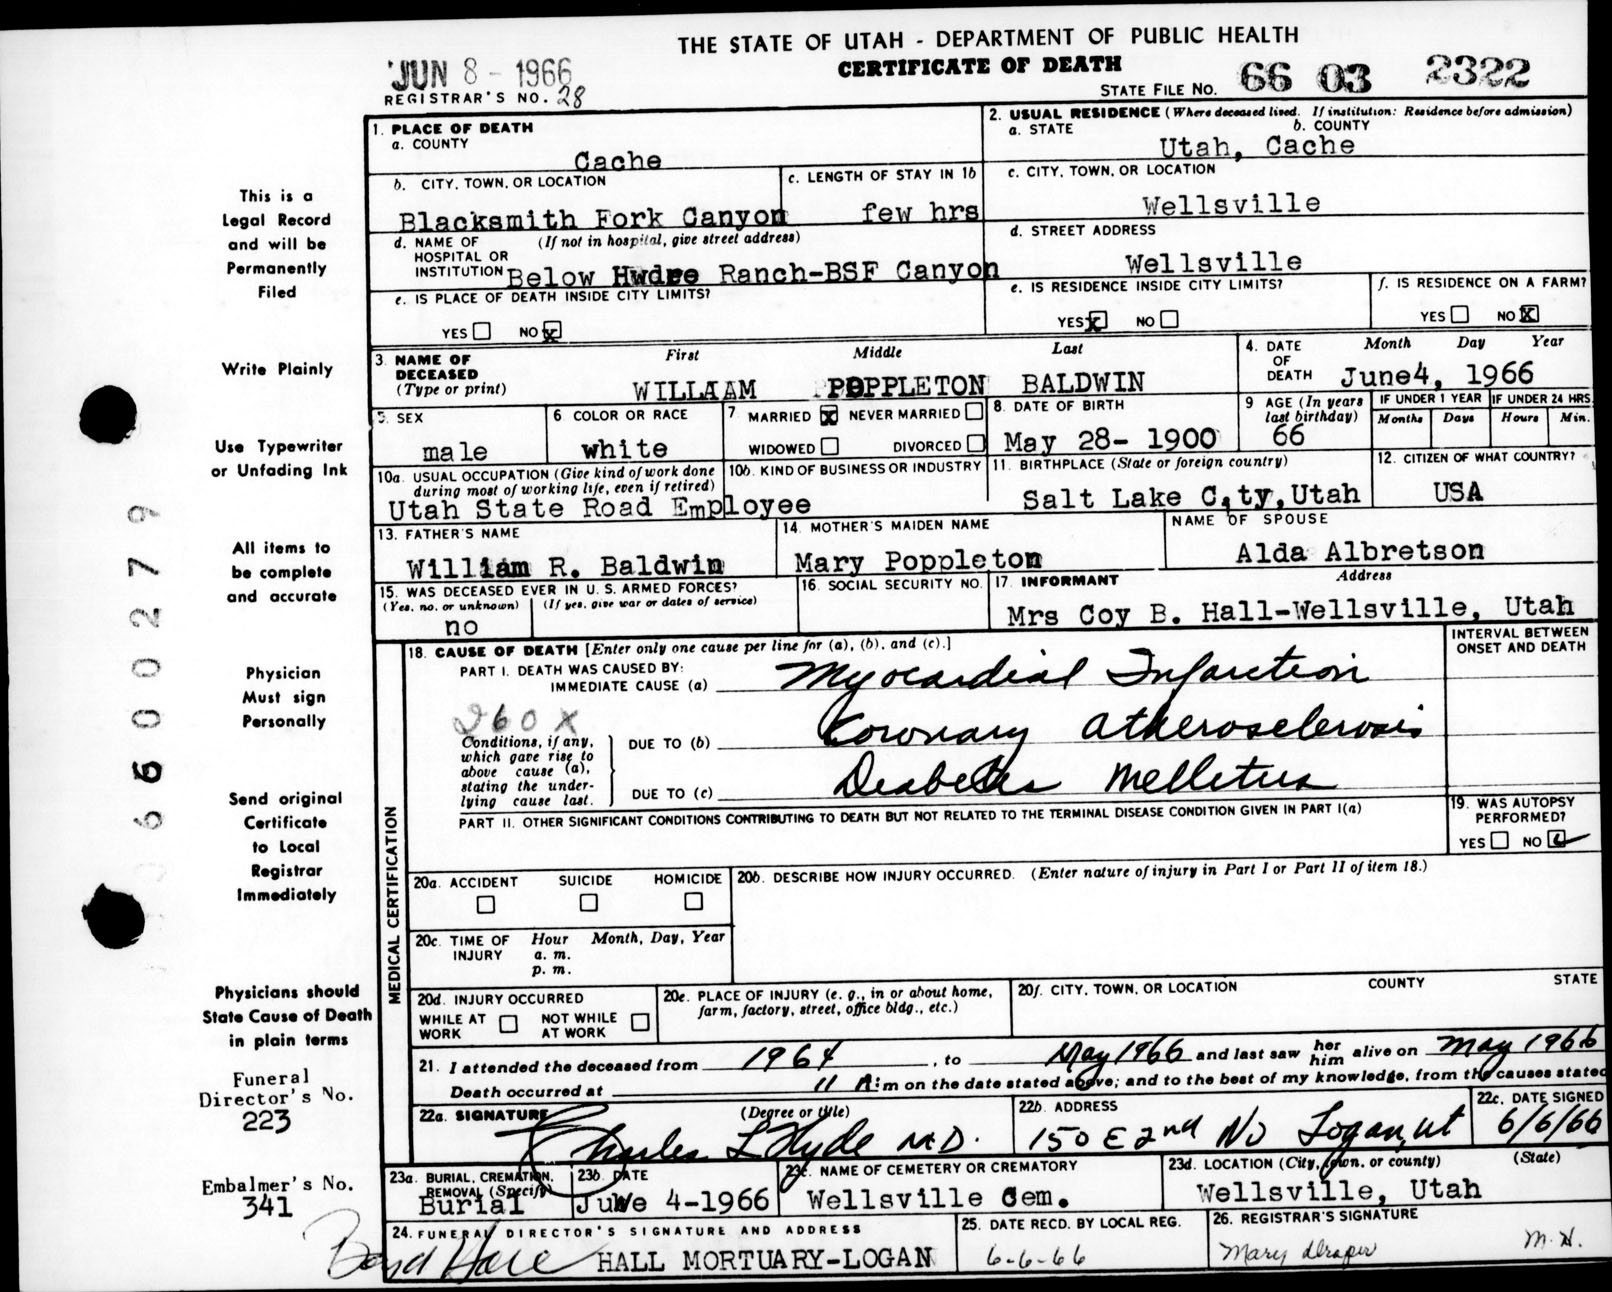 THE STATE OF UTAH - DEPARTMENT OF PUBLIC HEALTH
CERTIFICATE OF DEATH
JUN 8 - 1966
REGISTRAR'S NO. 28
STATE FILE NO. 66 03 2322
1. PLACE OF DEATH
a. COUNTY
Cache
2. USUAL RESIDENCE (Where deceased lived. If institution: Residence before admission)
a. STATE b. COUNTY
Utah, Cache
b. CITY, TOWN, OR LOCATION
Blacksmith Fork Canyon
c. LENGTH OF STAY IN 1b
few hrs
c. CITY, TOWN, OR LOCATION
Wellsville
d. NAME OF HOSPITAL OR INSTITUTION (If not in hospital, give street address)
Below Ranch-BSF Canyon
d. STREET ADDRESS
Wellsville
e. IS PLACE OF DEATH INSIDE CITY LIMITS?
YES NO X
e. IS RESIDENCE INSIDE CITY LIMITS?
YES X NO
f. IS RESIDENCE ON A FARM?
YES NO X
3. NAME OF DECEASED (Type or print)
First Middle Last
WILLIAM POPPLETON BALDWIN
4. DATE OF DEATH
Month Day Year
June4, 1966
5. SEX
male
6 COLOR OR RACE
white
7 MARRIED X NEVER MARRIED
WIDOWED DIVORCED
8. DATE OF BIRTH
May 28- 1900
9 AGE (In years last birthday)
66
IF UNDER 1 YEAR IF UNDER 24 HRS.
Months Days Hours Min.
10a. USUAL OCCUPATION (Give kind of work done during most of working life, even if retired)
10b. KIND OF BUSINESS OR INDUSTRY
Utah State Road Employee
11. BIRTHPLACE (State or foreign country)
Salt Lake City, Utah
12. CITIZEN OF WHAT COUNTRY?
USA
13. FATHER'S NAME
William R. Baldwin
14. MOTHER'S MAIDEN NAME
Mary Poppleton
NAME OF SPOUSE
Alda Albretson
15. WAS DECEASED EVER IN U. S. ARMED FORCES?
(Yes, no, or unknown) (If yes, give war or dates of service)
no
16. SOCIAL SECURITY NO.
17. INFORMANT Address
Mrs Coy B. Hall-Wellsville, Utah
18. CAUSE OF DEATH [Enter only one cause per line for (a), (b), and (c).]
INTERVAL BETWEEN ONSET AND DEATH
PART I. DEATH WAS CAUSED BY:
IMMEDIATE CAUSE (a) Myocardial Infarction
260 X
Conditions, if any, which gave rise to above cause (a), stating the underlying cause last.
DUE TO (b) Coronary Atherosclerosis
DUE TO (c) Diabetes Mellitus
PART II. OTHER SIGNIFICANT CONDITIONS CONTRIBUTING TO DEATH BUT NOT RELATED TO THE TERMINAL DISEASE CONDITION GIVEN IN PART I(a)
19. WAS AUTOPSY PERFORMED?
YES NO
MEDICAL CERTIFICATION
20a. ACCIDENT SUICIDE HOMICIDE
20b. DESCRIBE HOW INJURY OCCURRED. (Enter nature of injury in Part I or Part II of item 18.)
20c. TIME OF INJURY Hour Month, Day, Year
a. m.
p. m.
20d. INJURY OCCURRED
WHILE AT WORK NOT WHILE AT WORK
20e. PLACE OF INJURY (e. g., in or about home, farm, factory, street, office bldg., etc.)
20f. CITY, TOWN, OR LOCATION COUNTY STATE
21. I attended the deceased from 1964, to May 1966 and last saw her him alive on May 1966
Death occurred at 11 A:m on the date stated above; and to the best of my knowledge, from the causes stated
22a. SIGNATURE (Degree or title)
Charles L Hyde M.D.
22b. ADDRESS
150 E 2nd No Logan, Ut
22c. DATE SIGNED
6/6/66
23a. BURIAL, CREMATION, REMOVAL (Specify)
Burial
23b. DATE
June 4-1966
23c. NAME OF CEMETERY OR CREMATORY
Wellsville Cem.
23d. LOCATION (City, town, or county) (State)
Wellsville, Utah
24. FUNERAL DIRECTOR'S SIGNATURE AND ADDRESS
HALL MORTUARY-LOGAN
25. DATE RECD. BY LOCAL REG.
6-6-66
26. REGISTRAR'S SIGNATURE
Mary Draper M.H.
This is a
Legal Record
and will be
Permanently
Filed
Write Plainly
Use Typewriter
or Unfading Ink
All items to
be complete
and accurate
Physician
Must sign
Personally
Send original
Certificate
to Local
Registrar
Immediately
Physicians should
State Cause of Death
in plain terms
Funeral
Director's No.
223
Embalmer's No.
341
6600279